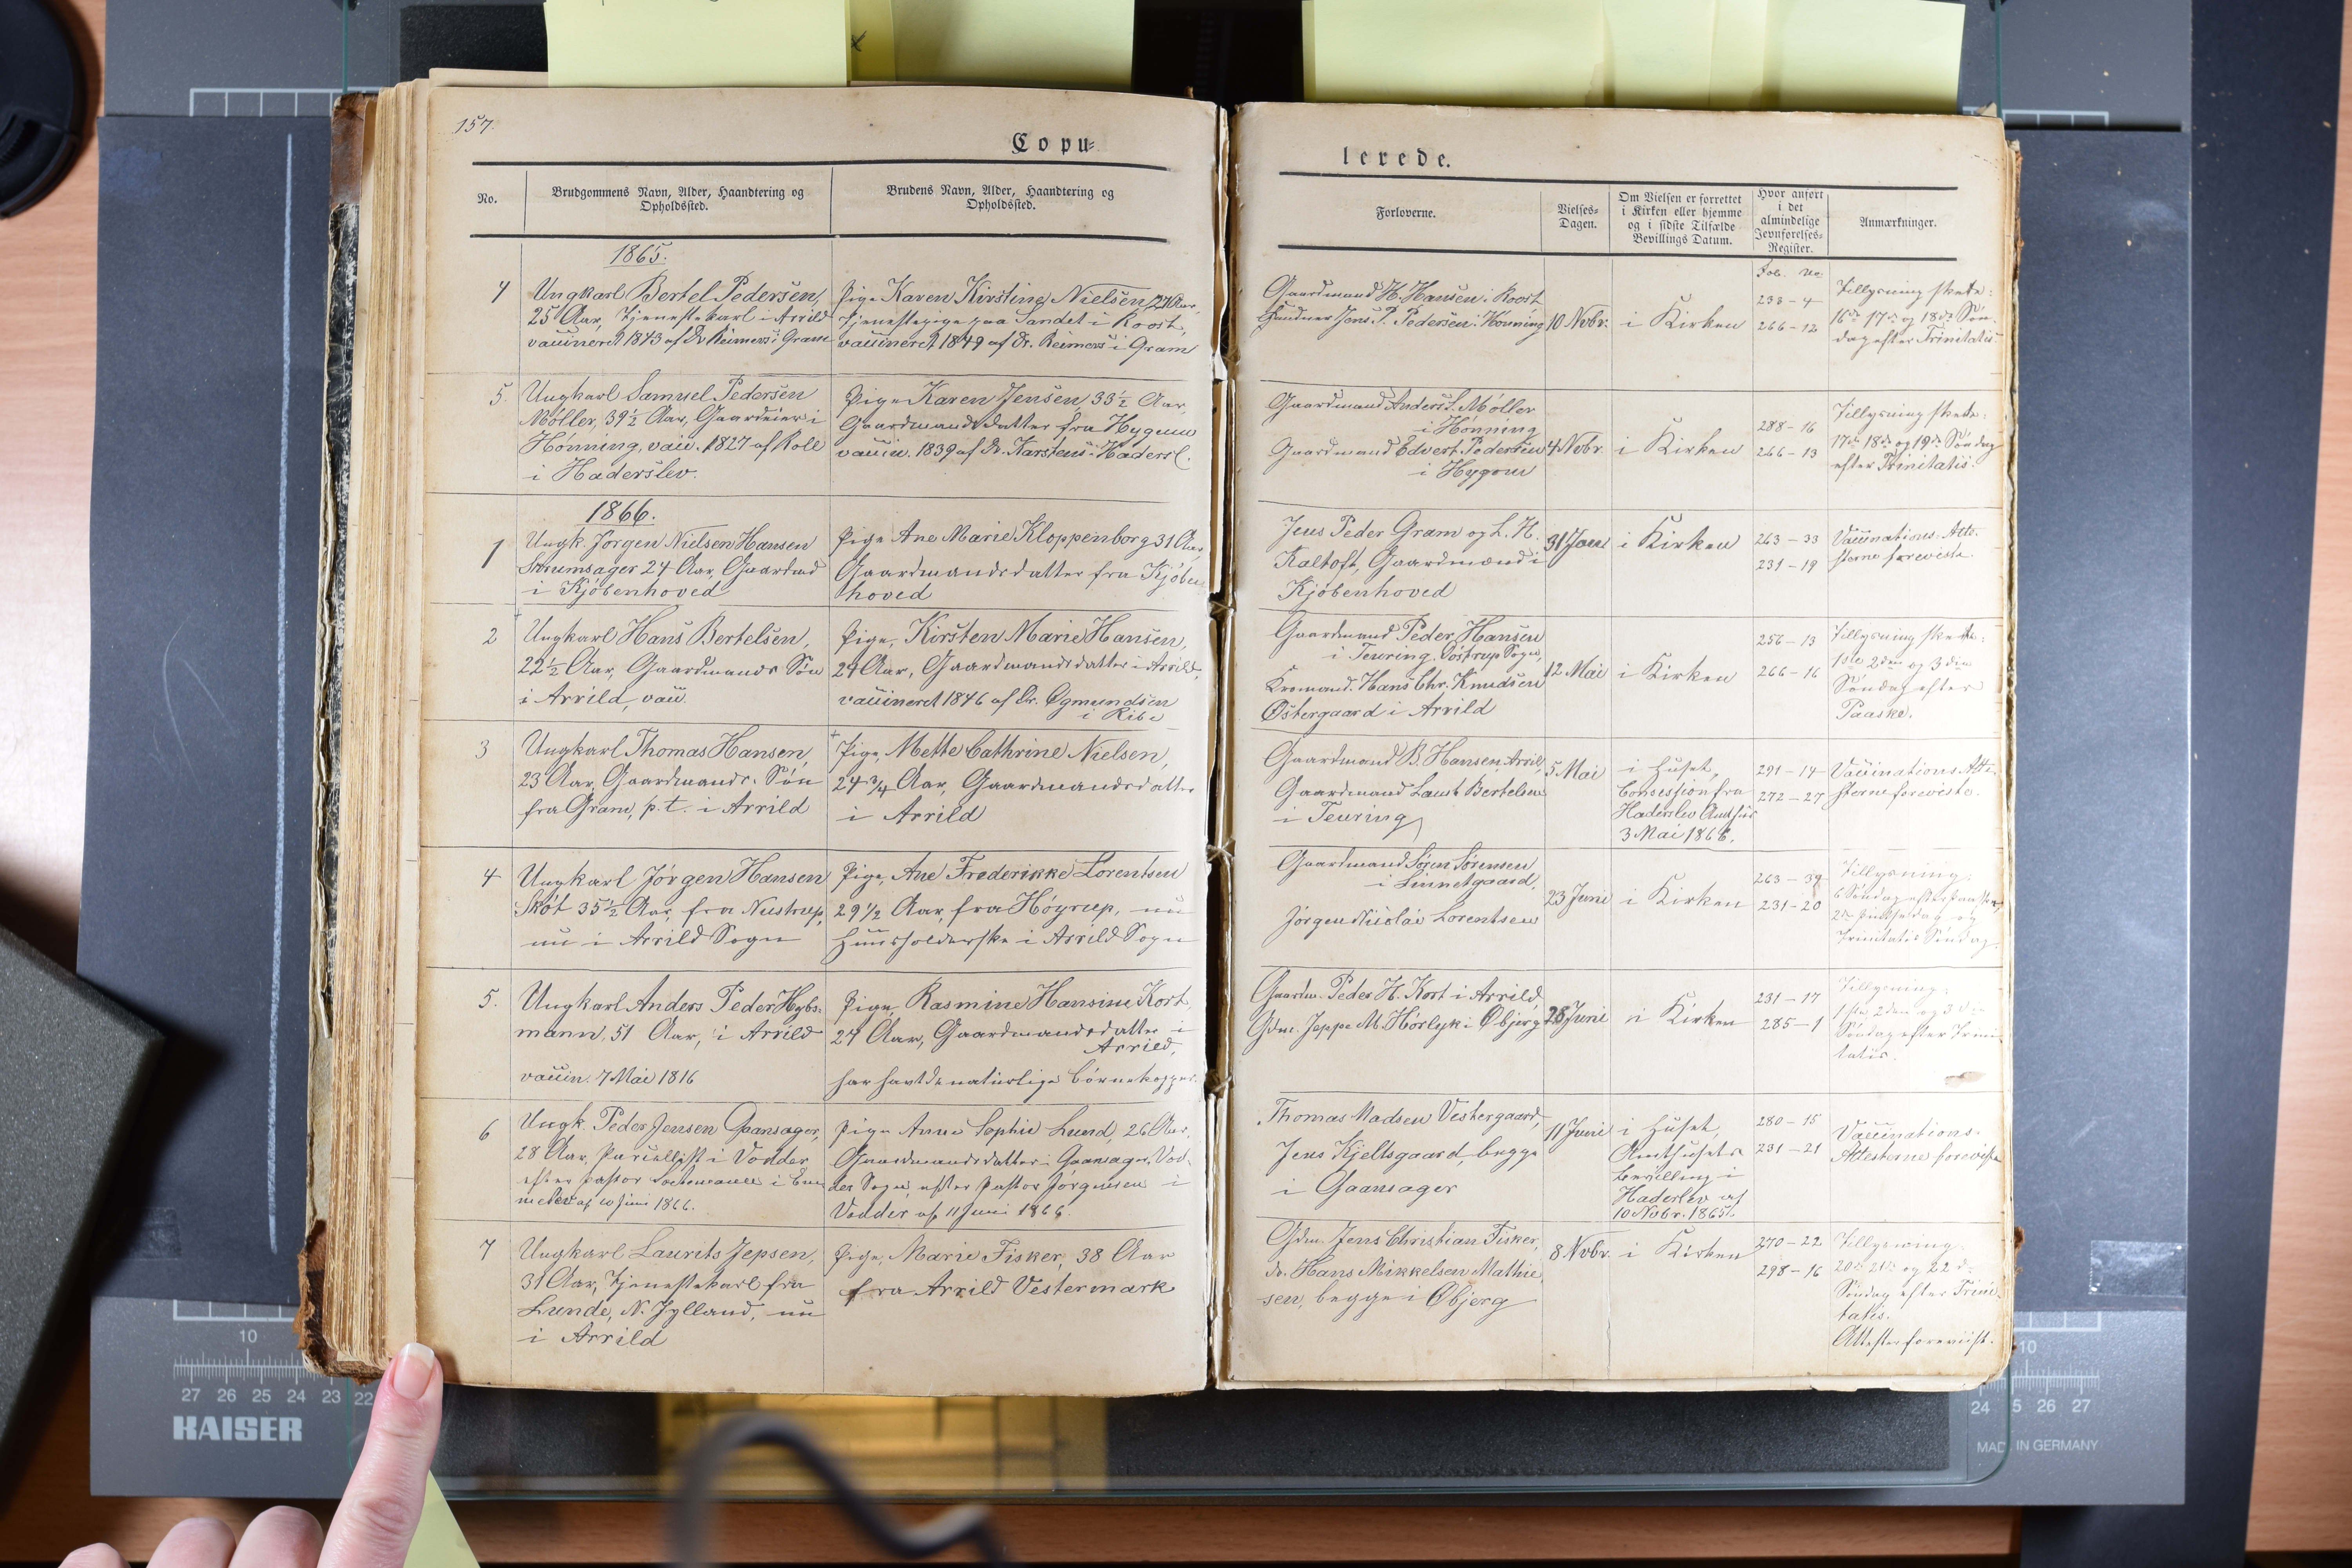 157.
Copu=
No.
Brudgommens Navn, Alder, Haandtering og
Opholdssted.
Brudens Navn, Alder, Haandtering og
Opholdssted.
1865.
4
Ungkarl Bertel Pedersen,
25 Aar, Tjenestekarl i Arrild
vaccineret 1843 af Dr Reimers i Gram
Pige Karen Kirstine Nielsen, 24 Aar,
Tjenestepige paa Landet i Roost,
vaccineret 1849 af Dr. Reimers i Gram
5.
Ungkarl Samuel Pedersen
Møller, 39½ Aar, Gaardeier i
Hønning, vacc. 1827 af Roll
i Haderslev.
Pige Karen Jensen 33½ Aar,
Gaardmandsdatter fra Hygum
vaccin. 1839 af Dr. Karstens i Hadersl.
1866.
1
Ungk. Jørgen Nielsen Hansen
Skrumsager 24 Aar, Gaardmd
i Kjöbenhoved
Pige Ane Marie Kloppenborg 31 Aar,
Gaardmandsdatter fra Kjöben
hoved
2
Ungkarl Hans Bertelsen,
22½ Aar, Gaardmands Søn
i Arrild, vacc.
Pige, Kirsten Marie Hansen,
24 Aar, Gaardmandsdatter i Arrild,
vaccineret 1846 af Dr. Ogmundsen
i Ribe
3
Ungkarl Thomas Hansen,
23 Aar, Gaardmands. Søn
fra Gram, p. t. i Arrild
Pige, Mette Cathrine Nielsen,
24 3/4 Aar, Gaardmandsdatter
i Arrild
4
Ungkarl Jørgen Hansen
Skøt 35½ Aar, fra Nustrup,
nu i Arrild Sogn
Pige, Ane Frederikke Lorentsen
29½ Aar, fra Höyrup, nu
Huusholderske i Arrild Sogn
5.
Ungkarl Anders Peder Hybs-
mann, 51 Aar, i Arrild
vaccin. 7 Mai 1816
Pige, Rasmine Hansine Kort
24 Aar, Gaardmandsdatter i
Arrild,
har havt de naturlige Börnekopper.
6
Ungk. Peder Jensen Gaansager,
28 Aar, Parcellist i Vodder
efter Pastor
af 10 Juni 1866.
Pige Anne Sophie Lund, 26 Aar,
Gaardmandsdatter i Gaansager, Vod-
der Sogn, efter Pastor Jørgensen i
Vodder af 11 Juni 1866.
7
Ungkarl Laurits Jepsen,
31 Aar, Tjenestekarl fra
Lunde, N. Jylland, nu
i Arrild
Pige, Marie Fisker, 38 Aar
fra Arrild Vestermark
lerede.
Forloverne.
Vielses-
Dagen.
Om Vielsen er forrettet
i Kirken eller hjemme
og i sidste Tilfælde
Bevillings Datum.
Hvor anført
i det
almindelige
Jevnførelses-
Register.
Anmærkninger.
Fol. No.
Gaardmand H. Hansen i Roost
Jens P. Pedersen i Hønning
10 Novbr.
i Kirken
238 - 4
266 - 12
Tillysning skete:
16de 17de og 18de Søn-
dag efter Trinitatis.
Gaardmand Anders S. Møller
i Hønning
Gaardmand Edvert Pedersen
i Hygom
4 Novbr.
i Kirken
288 - 16
266 - 13
Tillysning skete:
17de 18de og 19de Søndag
efter Trinitatis.
Jens Peder Gram og L. H.
Kaltoft, Gaardmænd i
Kjöbenhoved
31 Janr
i Kirken
263 - 33
231 - 19
Vaccinations-Atte-
sterne foreviste.
Gaardmand Peder Hansen
i Teuring, Döstrup Sogn,
Kromand. Hans Chr. Knudsen
Østergaard i Arrild
12 Mai
i Kirken
256 - 13
266 - 16
Tillysning skete:
1ste 2den og 3die
Søndag efter
Paaske.
Gaardmand B. Hansen, Arrild,
Gaardmand Laust Bertelsen
i Teuring
5 Mai
i Huset,
Concession fra
Haderslev Amthus
3 Mai 1866.
291 - 14
272 - 27
Vaccinations Atte-
sterne foreviste.
Gaardmand Søren Sørensen
i Linnetgaard,
Jørgen Nicolai Lorentsen
23 Juni
i Kirken
263 - 39
231 - 20
Tillysning:
6 Søndag efter Paaske,
2den Pintsedag og
Trinitatis Søndag.
Gaardm. Peder H. Kort i Arrild,
Gdm. Jeppe M. Hörlyk i Øbjerg
28 Juni
i Kirken
231 - 17
285 - 1
Tillysning:
1ste, 2den og 3die
Søndag efter Trini-
tatis.
Thomas Madsen Vestergaard,
Jens Kjeltsgaard, begge
i Gaansager
11 Juni
i Huset,
Amthusets
Bevilling i
Haderslev af
10 Novbr. 1865.
280 - 15
231 - 21
Vaccinations-
Attesterne foreviste
Gdm. Jens Christian Fisker,
do. Hans Mikkelsen Mathie
sen, begge i Øbjerg
8 Novbr.
i Kirken
270 - 22
298 - 16
Tillysning:
20de 21de og 22de
Søndag efter Trini-
tatis.
Attester foreviist.
10
27 26 25 24 23 22
KAISER
10
24 5 26 27
MADE IN GERMANY